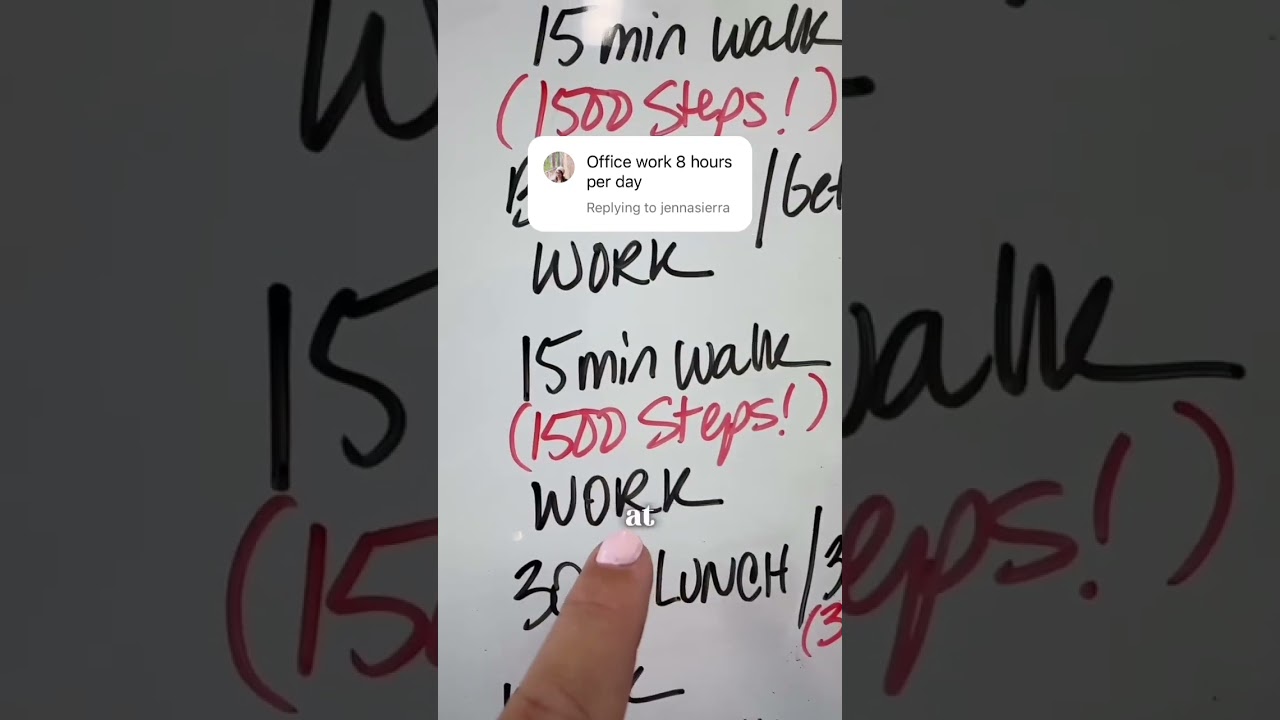 15 min walk
(1500 Steps!)
Office work 8 hours
per day
Replying to jennasierra
/Get
WORK
15 min walk
(1500 Steps!)
WORK
at
LUNCH/3
(3